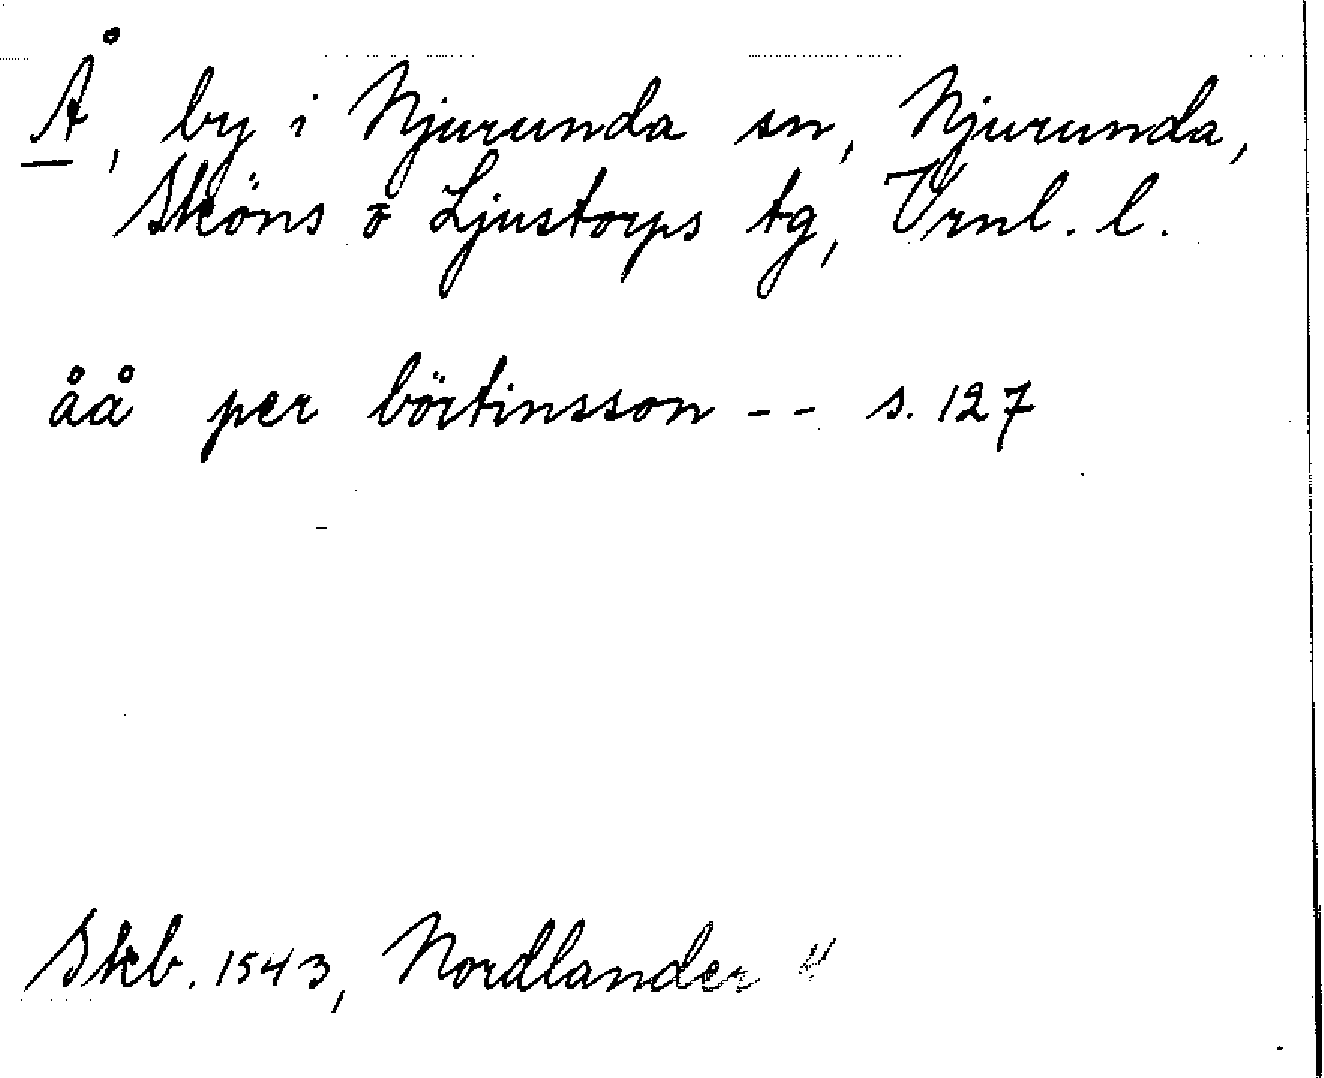 Å, by i Njurunda sn, Njurunda,
Sköns o Ljustorps tg, Vrnl. l.
åå per börtinsson -- s. 127
Skb. 1543, Nordlander "